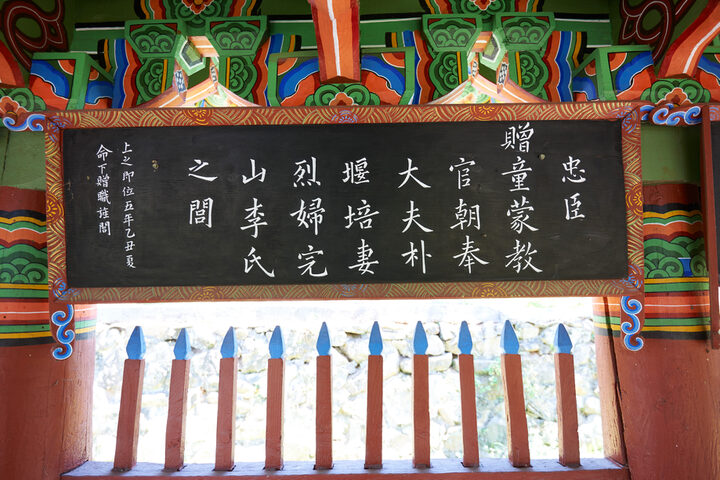 忠臣
贈童蒙教
官朝奉
大夫朴
堰培妻
烈婦完
山李氏
之閭
上之卽位五年乙丑夏
命下贈職旌閭